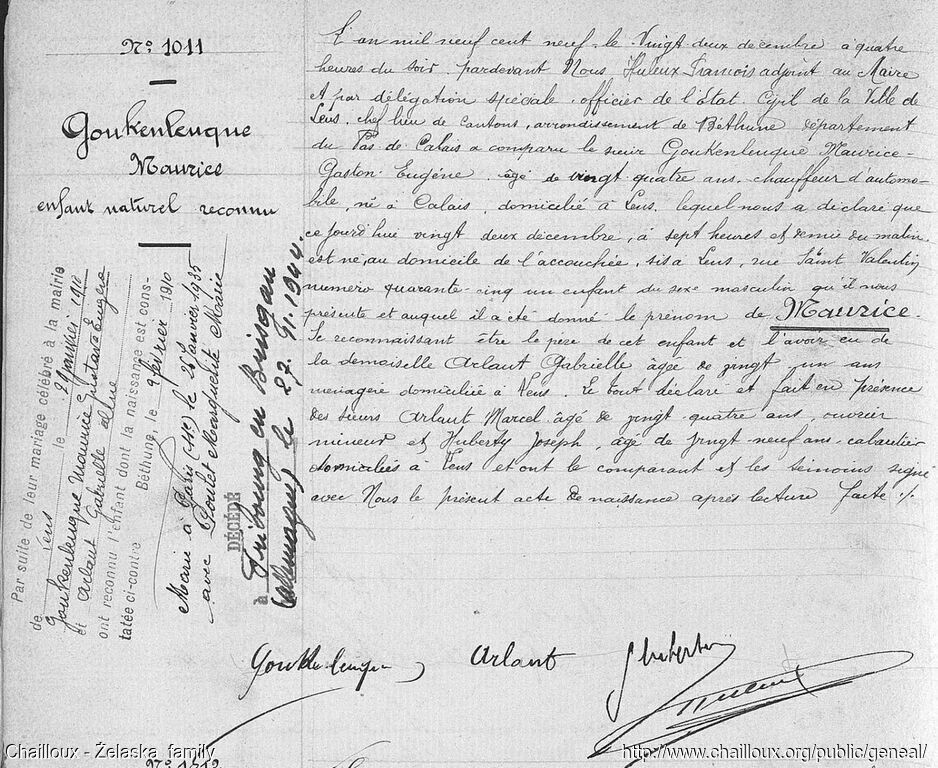 N° 1011
Goukenleuque
Maurice
enfant naturel reconnu
L'an mil neuf cent neuf le Vingt deux décembre à quatre
heures du soir pardevant Nous Huleux François adjoint au Maire
et par délégation spéciale officier de l'Etat Civil de la Ville de
Lens, chef lieu de cantons, arrondissement de Béthune département
du Pas de Calais a comparu le sieur Goukenleuque Maurice-
Gaston Eugène âgé de vingt quatre ans, chauffeur d'automo-
bile, né à Calais, domicilié à Lens, lequel nous a déclaré que
ce jourd'hui vingt deux décembre, à sept heures et demie du matin
est né, au domicile de l'accouchée, sis à Lens, rue Saint Valentin
numéro quarante-cinq un enfant du sexe masculin qu'il nous
présente et auquel il a été donné le prénom de Maurice.
Se reconnaissant être le père de cet enfant et l'avoir eu de
la demoiselle Arlaut Gabrielle âgée de vingt un ans
ménagère domiciliée à Lens. Le tout déclaré et fait en présence
des sieurs Arlaut Marcel âgé de vingt quatre ans, ouvrier
mineur et Huberty Joseph, âgé de vingt neuf ans cabaretier
domiciliés à Lens et ont le comparant et les témoins signé
avec Nous le présent acte de naissance après lecture faite ./.
Par suite de leur mariage célébré à la mairie
de Lens le 29 janvier 1910
Goukenleuque Maurice Eugène
et Arlaut Gabrielle
ont reconnu l'enfant dont la naissance est cons-
tatée ci-contre Béthune, le 9 février 1910
Marié à Paris le 26 janvier 1935
avec Poulet Marguerite Marie
DÉCÉDÉ
à Fribourg en Brisgau
(Allemagne) le 27.11.1944.
Goukenleuque
Arlaut
J Huberty
Huleux
N° 1012
Chailloux - Želaska family
http://www.chailloux.org/public/geneal/